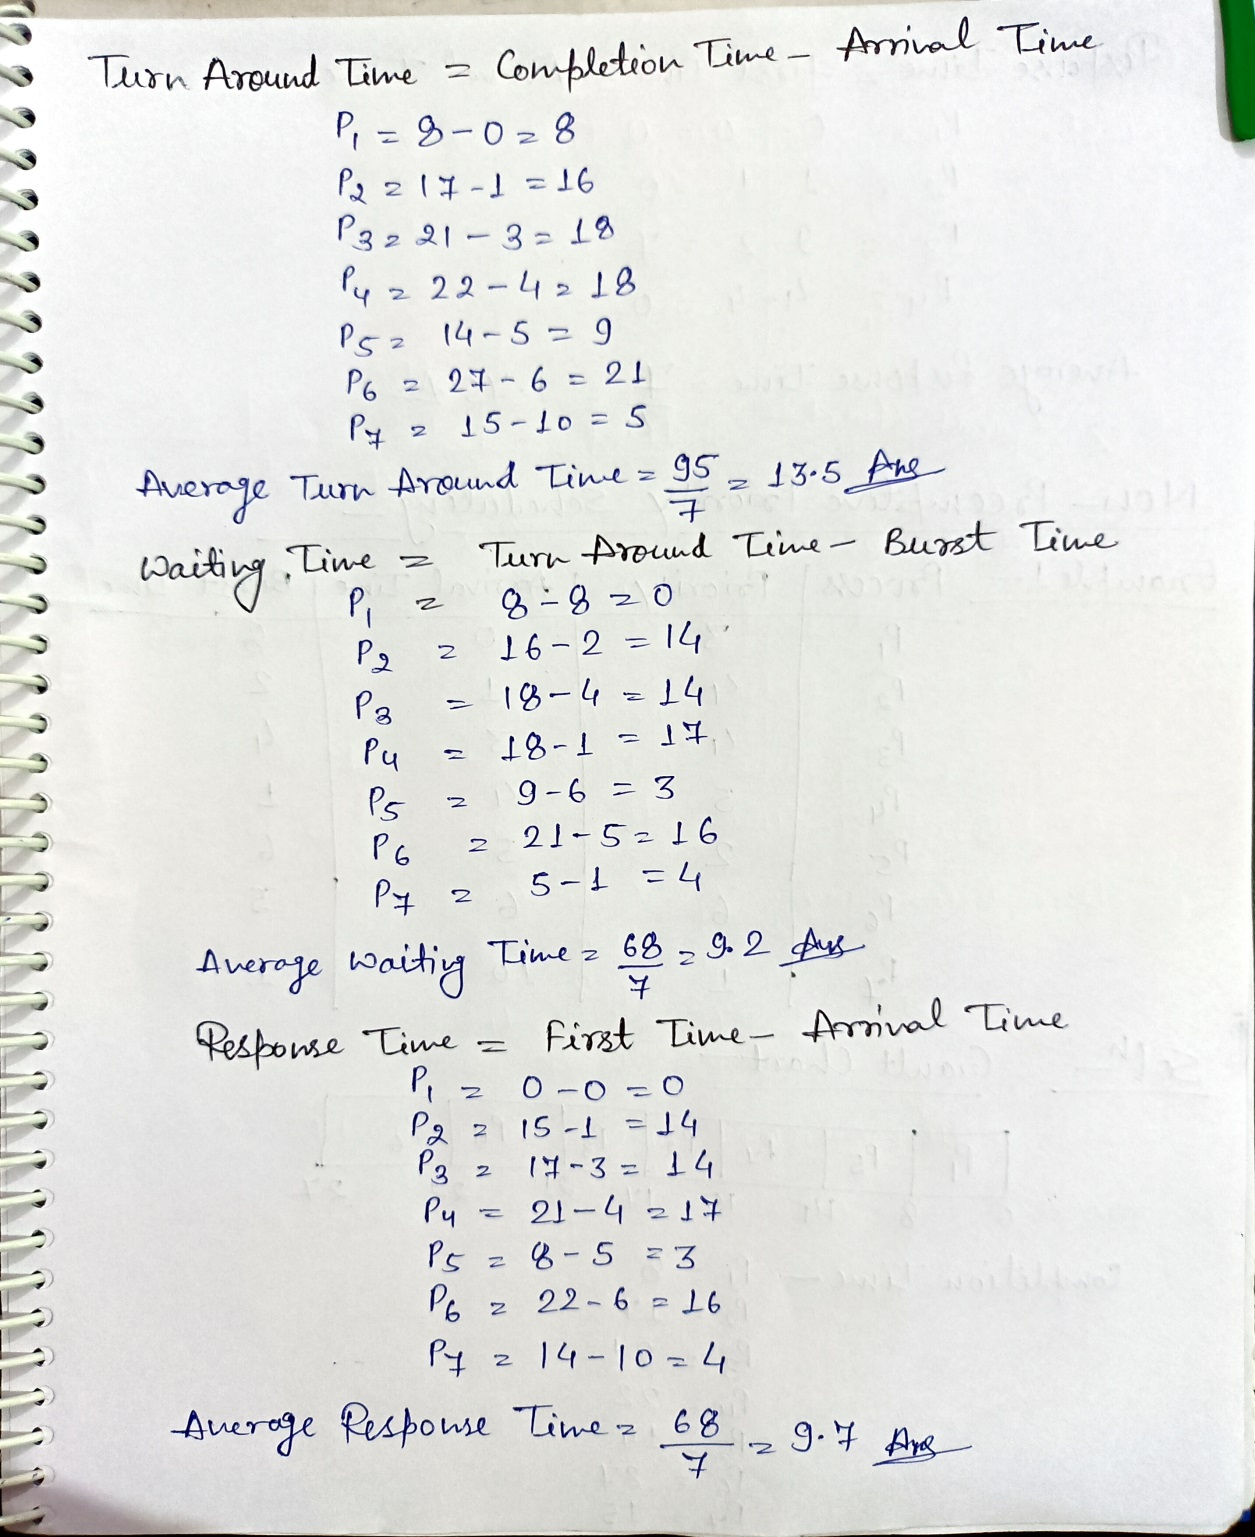 Turn Around Time = Completion Time - Arrival Time
P1 = 8-0 = 8
P2 = 17-1 = 16
P3 = 21-3 = 18
P4 = 22-4 = 18
P5 = 14-5 = 9
P6 = 27-6 = 21
P7 = 15-10 = 5
Average Turn Around Time = 95/7 = 13.5 Ans
Waiting Time = Turn Around Time - Burst Time
P1 = 8-8 = 0
P2 = 16-2 = 14
P3 = 18-4 = 14
P4 = 18-1 = 17
P5 = 9-6 = 3
P6 = 21-5 = 16
P7 = 5-1 = 4
Average Waiting Time = 68/7 = 9.2 Ans
Response Time = First Time - Arrival Time
P1 = 0-0 = 0
P2 = 15-1 = 14
P3 = 17-3 = 14
P4 = 21-4 = 17
P5 = 8-5 = 3
P6 = 22-6 = 16
P7 = 14-10 = 4
Average Response Time = 68/7 = 9.7 Ans